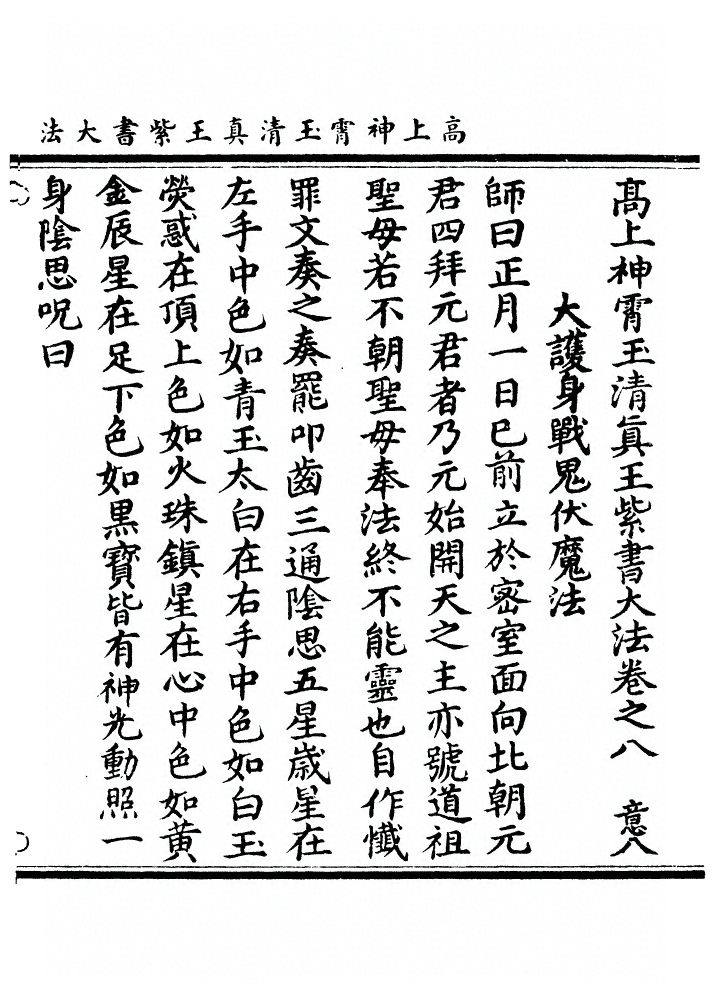 高上神霄玉清真王紫書大法
高上神霄玉清眞王紫書大法卷之八　意八
大護身戰鬼伏魔法
師曰正月一日巳前立於密室面向北朝元
君四拜元君者乃元始開天之主亦號道祖
聖母若不朝聖母奉法終不能靈也自作懺
罪文奏之奏罷叩齒三通陰思五星歲星在
左手中色如青玉太白在右手中色如白玉
熒惑在頂上色如火珠鎮星在心中色如黃
金辰星在足下色如黑寶皆有神光動照一
身陰思呪曰